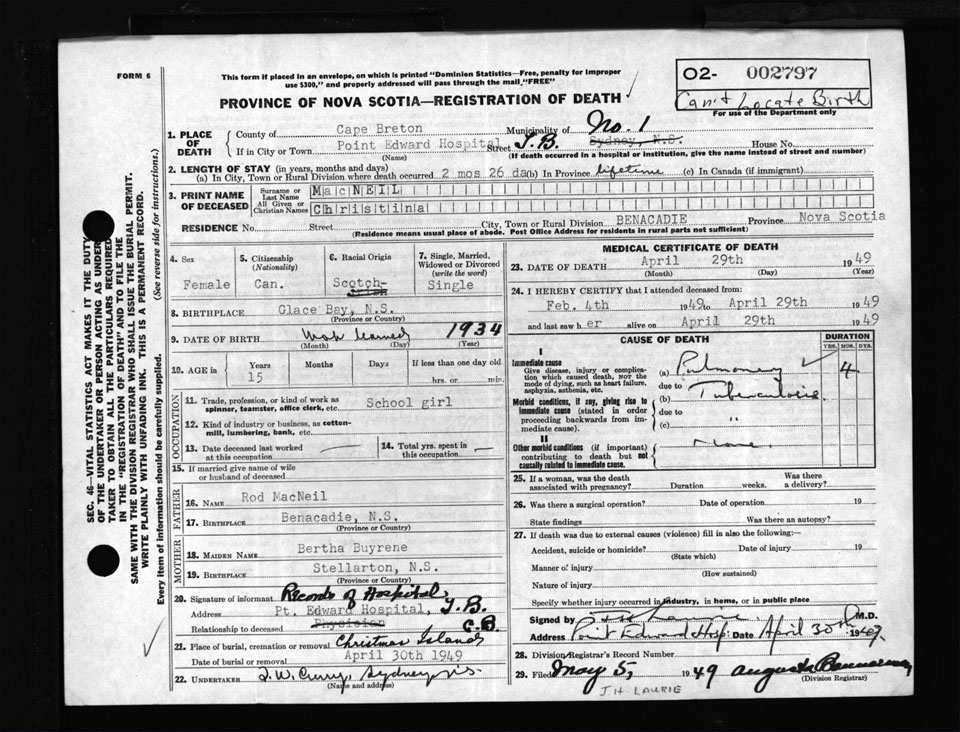 FORM 6
This form if placed in an envelope, on which is printed "Dominion Statistics—Free, penalty for improper
use $300," and properly addressed will pass through the mail "FREE"
O2- 002797
Can't Locate Birth
For use of the Department only
PROVINCE OF NOVA SCOTIA—REGISTRATION OF DEATH
1. PLACE OF DEATH
County of Cape Breton Municipality of No. 1
If in City or Town Point Edward Hospital Street T.B. Sydney, N.S. House No.
(Name) (If death occurred in a hospital or institution, give the name instead of street and number)
2. LENGTH OF STAY (in years, months and days)
(a) In City, Town or Rural Division where death occurred 2 mos 26 da (b) In Province lifetime (c) In Canada (if immigrant)
3. PRINT NAME OF DECEASED
Surname or Last Name MacNEIL
All Given or Christian Names Christina
RESIDENCE No. Street City, Town or Rural Division BENACADIE Province Nova Scotia
(Residence means usual place of abode. Post Office Address for residents in rural parts not sufficient)
SEC. 46—VITAL STATISTICS ACT MAKES IT THE DUTY
OF THE UNDERTAKER OR PERSON ACTING AS UNDER-
TAKER TO OBTAIN ALL THE PARTICULARS REQUIRED
IN THE "REGISTRATION OF DEATH" AND TO FILE THE
SAME WITH THE DIVISION REGISTRAR WHO SHALL ISSUE THE BURIAL PERMIT.
WRITE PLAINLY WITH UNFADING INK. THIS IS A PERMANENT RECORD.
Every item of information should be carefully supplied. (See reverse side for instructions.)
4. Sex
Female
5. Citizenship
(Nationality)
Can.
6. Racial Origin
Scotch-
7. Single, Married,
Widowed or Divorced
(write the word)
Single
8. BIRTHPLACE Glace Bay, N.S.
(Province or Country)
9. DATE OF BIRTH 1934
(Month) (Day) (Year)
10. AGE in
Years Months Days If less than one day old
15 hrs. or min.
OCCUPATION
11. Trade, profession, or kind of work as
spinner, teamster, office clerk, etc. School girl
12. Kind of industry or business, as cotton-
mill, lumbering, bank, etc.
13. Date deceased last worked
at this occupation
14. Total yrs. spent in
this occupation
15. If married give name of wife
or husband of deceased
FATHER
16. NAME Rod MacNeil
17. BIRTHPLACE Benacadie, N.S.
(Province or Country)
MOTHER
18. MAIDEN NAME Bertha Buyrene
19. BIRTHPLACE Stellarton, N.S.
(Province or Country)
20. Signature of informant Records of Hospital
Address Pt. Edward Hospital, T.B.
Relationship to deceased Physician C.B.
21. Place of burial, cremation or removal Christmas Island
Date of burial or removal April 30th 1949
22. UNDERTAKER T.W. Curry, Sydney, N.S.
(Name and address)
MEDICAL CERTIFICATE OF DEATH
23. DATE OF DEATH April 29th 1949
(Month) (Day) (Year)
24. I HEREBY CERTIFY that I attended deceased from:
Feb. 4th 1949 to April 29th 1949
and last saw her alive on April 29th 1949
CAUSE OF DEATH
DURATION
YRS. MOS. DYS.
I
Immediate cause
Give disease, injury or complica-
tion which caused death, NOT the
mode of dying, such as heart failure,
asphyxia, asthenia, etc.
(a) Pulmonary 4
due to
Morbid conditions, if any, giving rise to
immediate cause (stated in order
proceeding backwards from im-
mediate cause).
(b) Tuberculosis
due to
(c) "
II
Other morbid conditions (if important)
contributing to death but not
causally related to immediate cause.
None
25. If a woman, was the death
associated with pregnancy? Duration weeks. Was there
a delivery?
26. Was there a surgical operation? Date of operation 19
State findings Was there an autopsy?
27. If death was due to external causes (violence) fill in also the following:—
Accident, suicide or homicide? Date of injury 19
(State which)
Manner of injury
(How sustained)
Nature of injury
Specify whether injury occurred in industry, in home, or in public place
Signed by M.D.
Address Point Edward Hosp. Date April 30th 1949.
28. Division Registrar's Record Number
29. Filed May 5, 1949 Augusta Bannerman
(Division Registrar)
J.H. LAURIE